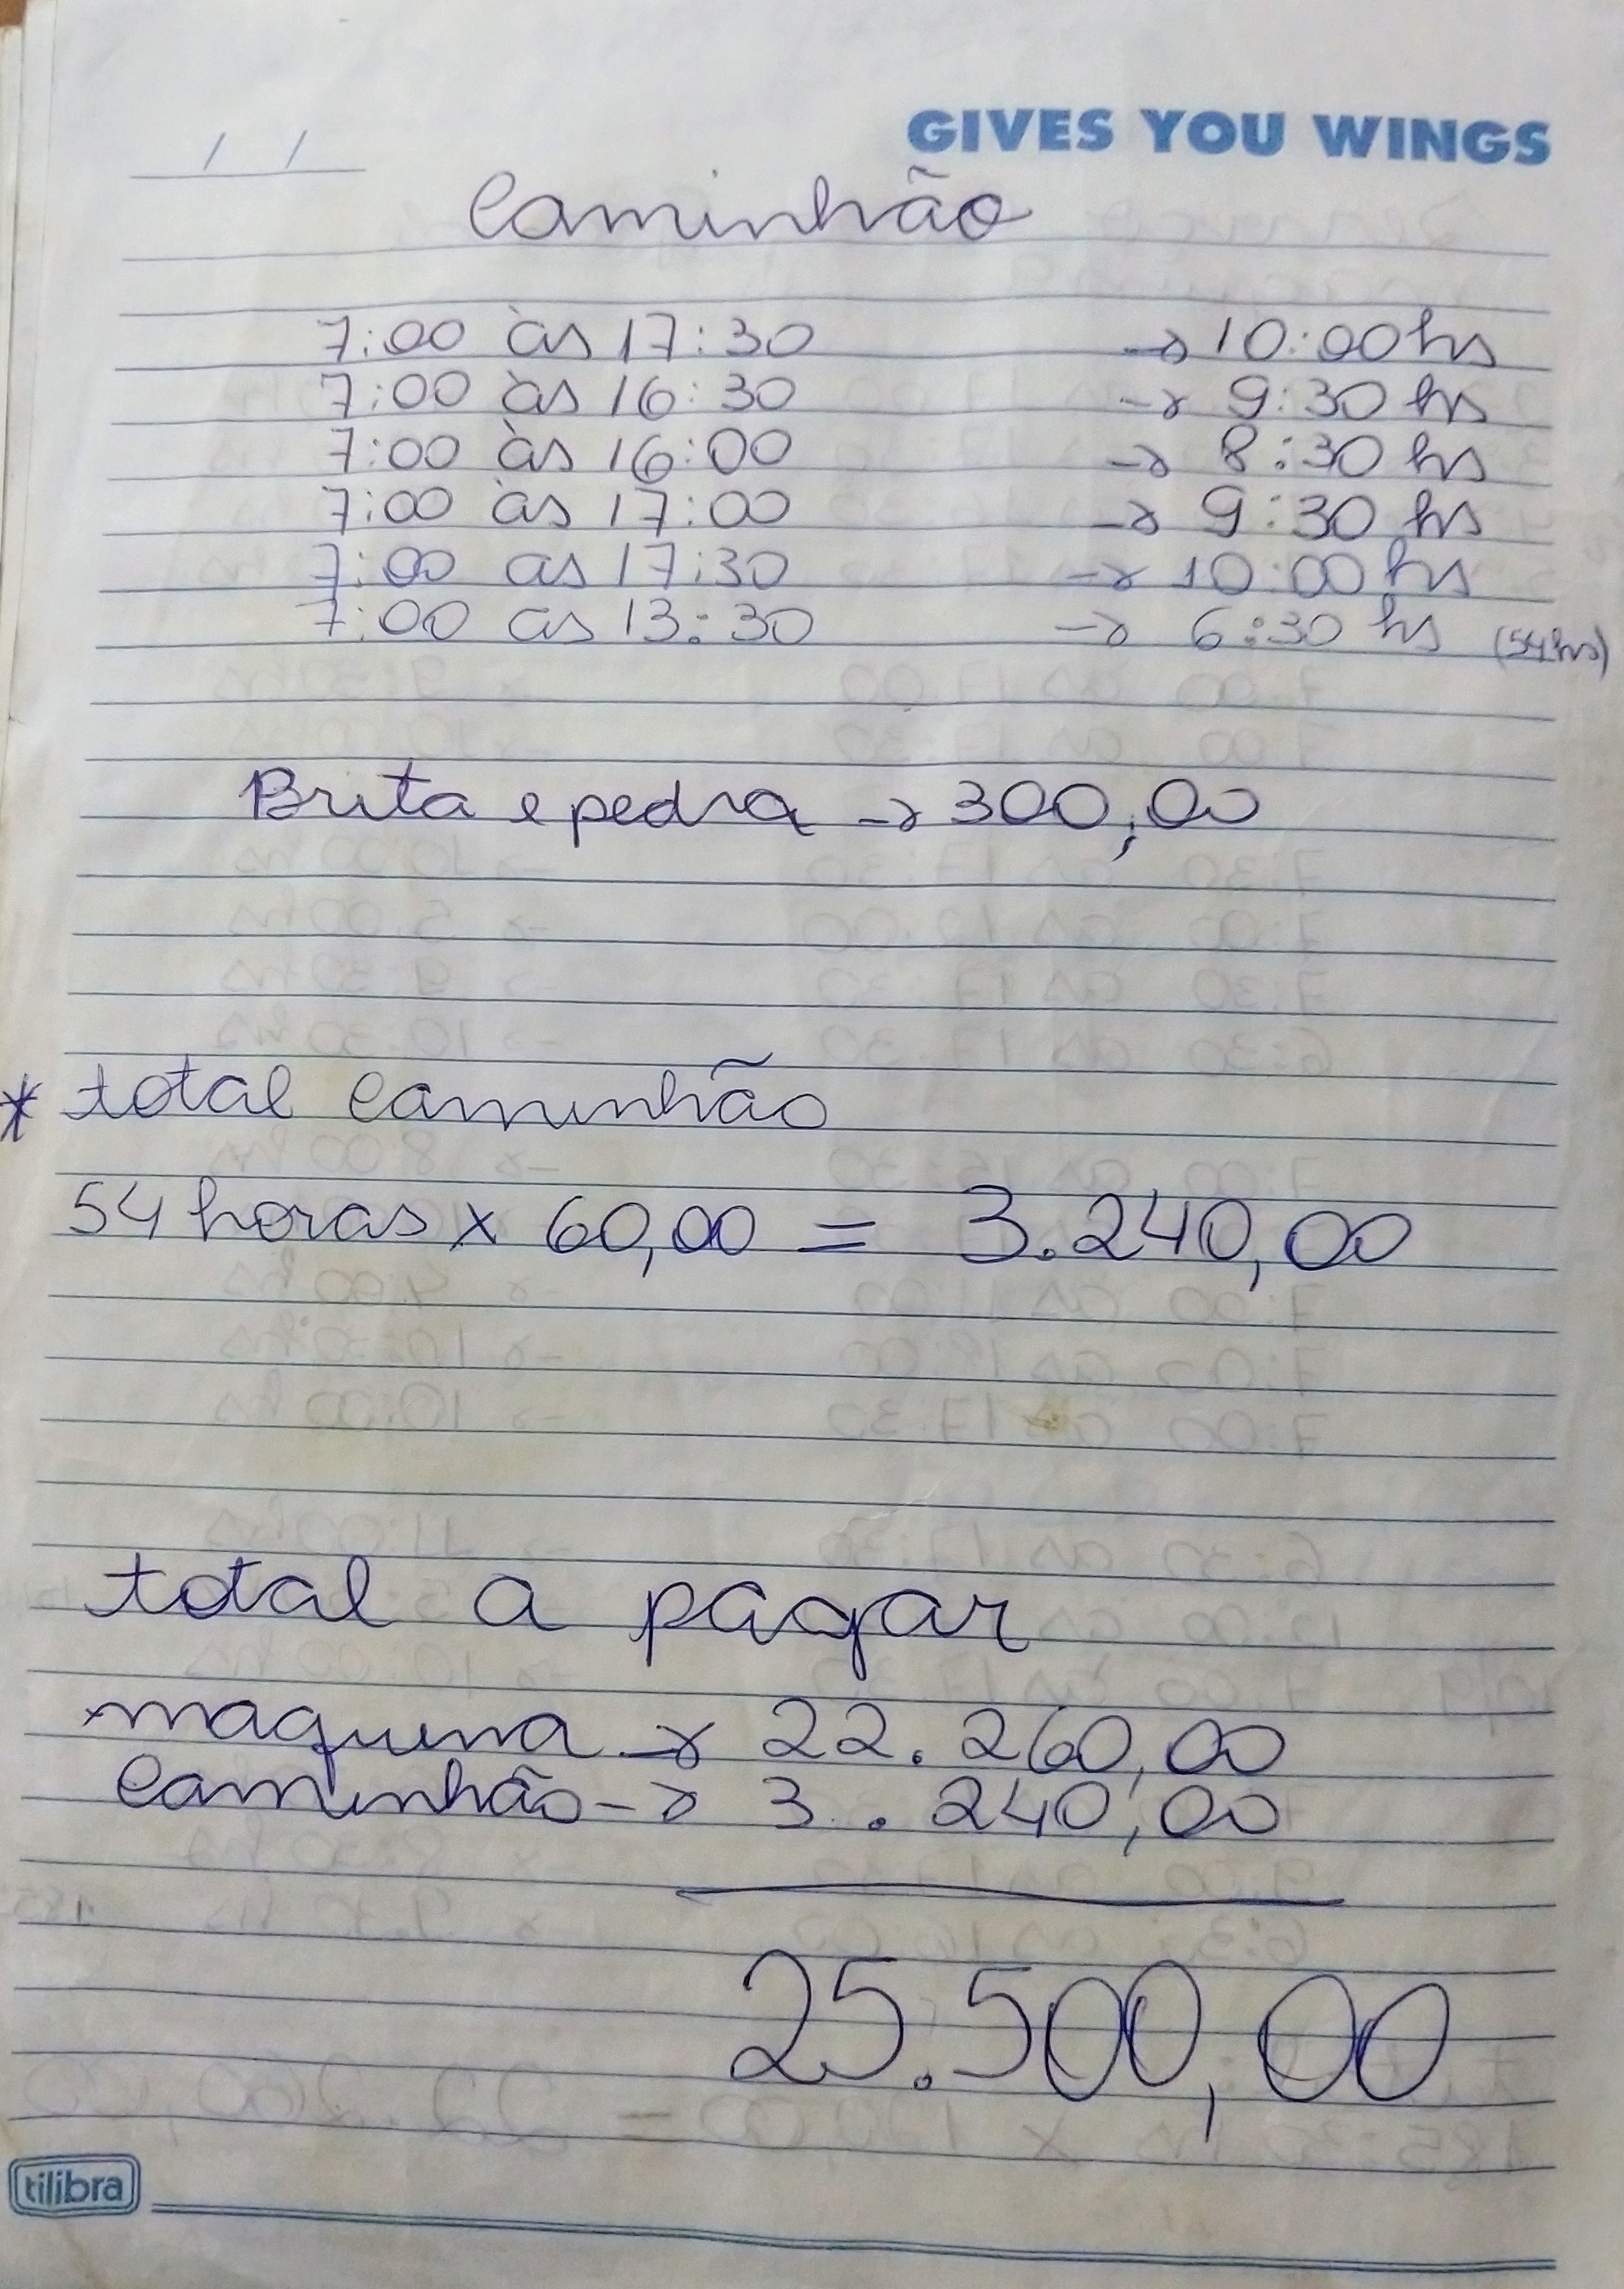 GIVES YOU WINGS
/ /
Caminhão
7:00 às 17:30 → 10:00 hs
7:00 às 16:30 → 9:30 hs
7:00 às 16:00 → 8:30 hs
7:00 às 17:00 → 9:30 hs
7:00 as 17:30 → 10:00 hs
7:00 as 13:30 → 6:30 hs (54hs)
Brita e pedra → 300,00
* total caminhão
54 horas x 60,00 = 3.240,00
total a pagar
maquina → 22.260,00
caminhão → 3.240,00
25.500,00
tilibra